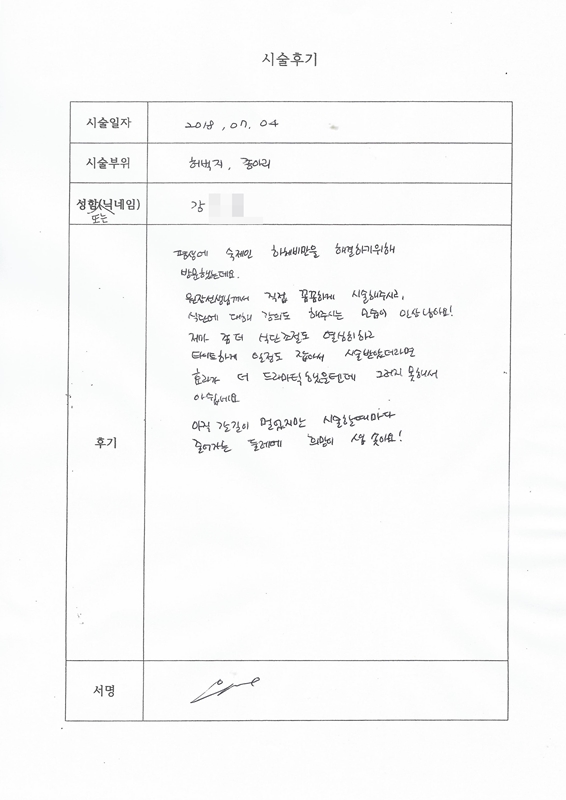 시술후기
시술일자
2018. 07. 04
시술부위
허벅지, 종아리
성함(닉네임)
또는
강
후기
평생에 숙제인 하체비만을 해결하기위해
방문했는데요.
원장선생님께서 직접 꼼꼼하게 시술해주시고,
식단에 대해 강의도 해주시는 모습이 인상 남아요!
제가 좀 더 식단조절도 열심히하고
타이트하게 일정도 잡아서 시술받았더라면
효과가 더 드라마틱했을텐데 그러지 못해서
아쉽네요
아직 갈길이 멀었지만 시술할때마다
줄어가는 둘레에 희망이 샘 솟아요!
서명